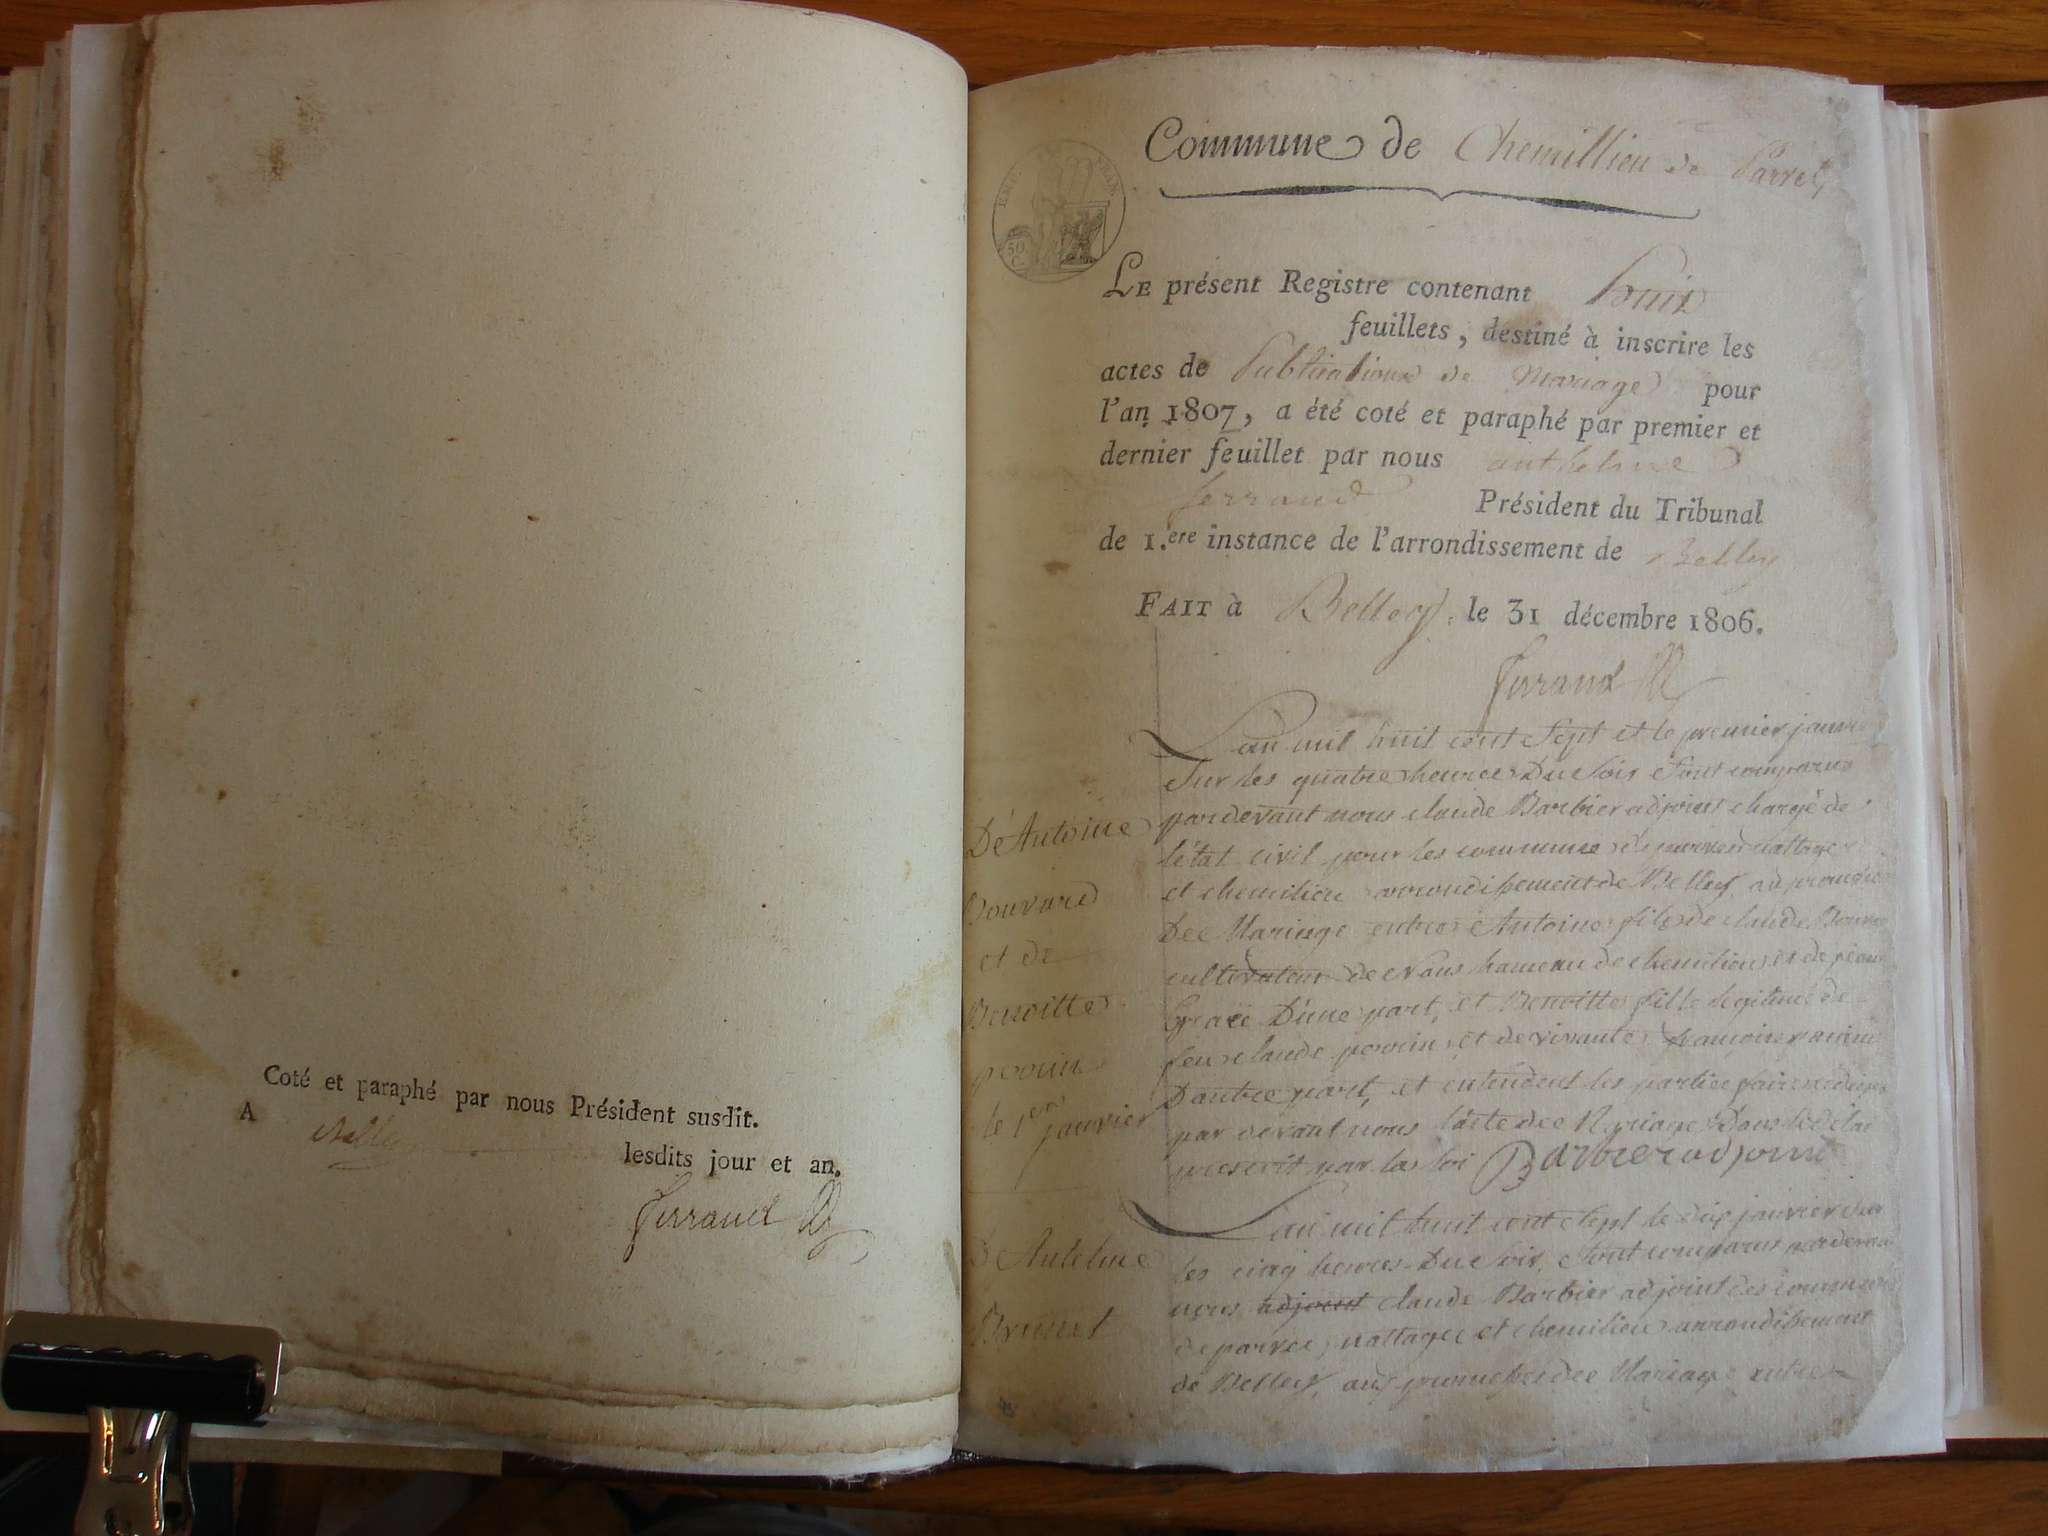 Coté et paraphé par nous Président susdit.
A Belley
lesdits jour et an.
Ferrand
Commune de Chemillieu de Parves
EMP. FRAN.
50 C
LE présent Registre contenant huit
feuillets, destiné à inscrire les
actes de Publications de Mariage pour
l'an 1807, a été coté et paraphé par premier et
dernier feuillet par nous anthelme
ferrand Président du Tribunal
de 1.ere instance de l'arrondissement de Belley
FAIT à Belley, le 31 décembre 1806.
Ferrand
D'Antoine
Bouvard
et de
Benoitte
perrin
le 1er janvier
Lan mil huit cent Sept et le premier janvier
Sur les quatre heures Du Soir Sont comparus
pardevant nous claude Barbier adjoint chargé de
létat civil pour les commune de parves nattage
et chemilieu arrondissement de Belley, au promesse
Dee Mariage entre Antoine fils de claude Bouvard
cultivateur de Nans hameau de chemilieu et de
D'une part, et Benoitte fille legitime de
feu claude perrin et de vivante françoise
D'autre part, et entendent les parties faire rediger
par devant nous l'acte dee Mariage Dans le delai
prescrit par la loi Barbier adjoint
D'Antelme
Brunet
Lan mil huit cent Sept le dix janvier Sur
les cinq heures Du Soir, Sont comparus pardevant
nous adjoint claude Barbier adjoint des communes
de parves, nattages et chemilieu arrondissement
de Belley, aux promesses dee Mariage entre